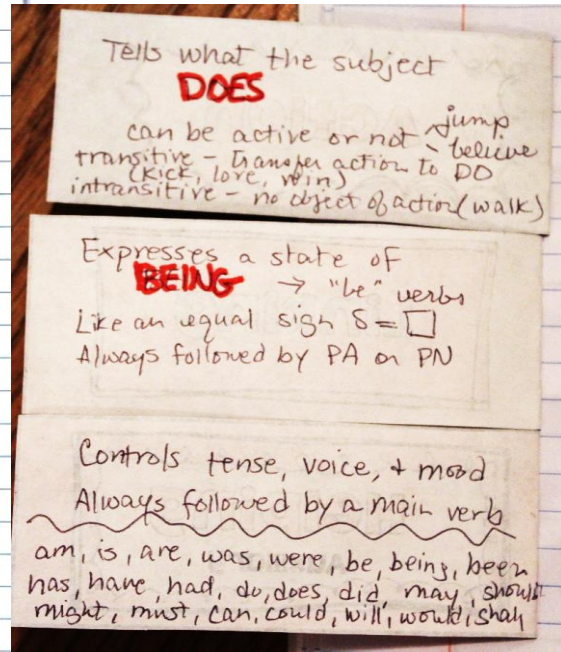 Tells what the subject
DOES
can be active or not - jump
- believe
transitive - transfer action to DO
(kick, love, win)
intransitive - no object of action (walk)
Expresses a state of
BEING → "be" verbs
Like an equal sign S = □
Always followed by PA or PN
Controls tense, voice, + mood
Always followed by a main verb
am, is, are, was, were, be, being, been
has, have, had, do, does, did, may, should
might, must, can, could, will, would, shall